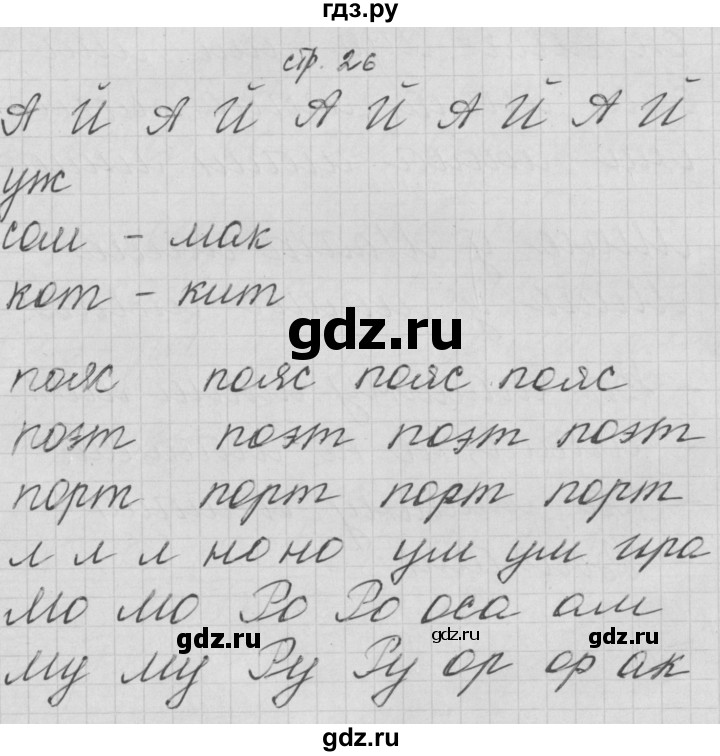 гдз.ру
стр. 26
А Й А Й А Й А Й А Й
уж
сом - мак
кот - кит
gdz.ru
пояс пояс пояс пояс
поэт поэт поэт поэт
порт порт порт порт
л л л но но ум ум ира
Мо Мо Ро Ро оса ам
gdz.ru gdz.ru gdz.ru
Му Му Ру Ру ор ор ак
gdz.ru